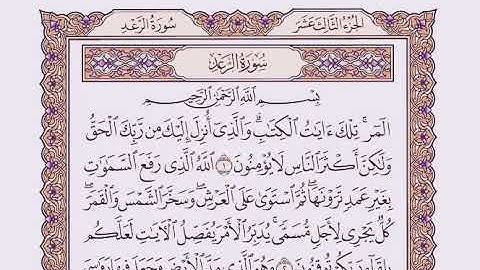 الجزء الثالث عشر
سورة الرعد
سورة الرعد
بسم الله الرحمن الرحيم
الٓمٓرۚ تِلۡكَ ءَايَٰتُ ٱلۡكِتَٰبِۗ وَٱلَّذِيٓ أُنزِلَ إِلَيۡكَ مِن رَّبِّكَ ٱلۡحَقُّ
وَلَٰكِنَّ أَكۡثَرَ ٱلنَّاسِ لَا يُؤۡمِنُونَ ١ ٱللَّهُ ٱلَّذِي رَفَعَ ٱلسَّمَٰوَٰتِ
بِغَيۡرِ عَمَدٖ تَرَوۡنَهَاۖ ثُمَّ ٱسۡتَوَىٰ عَلَى ٱلۡعَرۡشِۖ وَسَخَّرَ ٱلشَّمۡسَ وَٱلۡقَمَرَۖ
كُلّٞ يَجۡرِي لِأَجَلٖ مُّسَمّٗىۚ يُدَبِّرُ ٱلۡأَمۡرَ يُفَصِّلُ ٱلۡأٓيَٰتِ لَعَلَّكُم
بِلِقَآءِ رَبِّكُمۡ تُوقِنُونَ ٢ وَهُوَ ٱلَّذِي مَدَّ ٱلۡأَرۡضَ وَجَعَلَ فِيهَا رَوَٰسِيَ